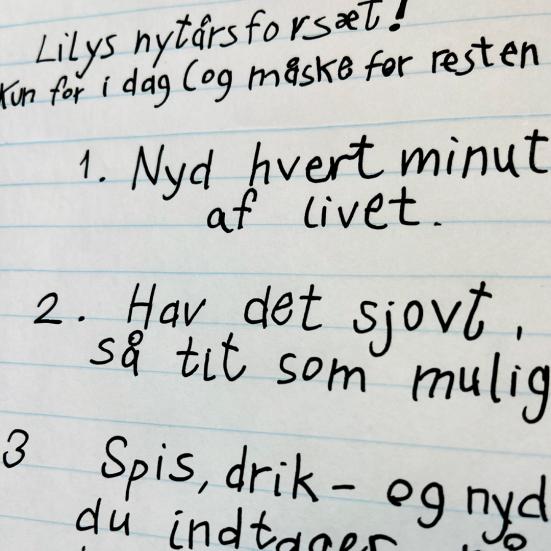 Lilys nytårsforsæt!
Kun for i dag (og måske for resten
1. Nyd hvert minut
af livet.
2. Hav det sjovt,
så tit som mulig
3 Spis, drik - og nyd
du indtager